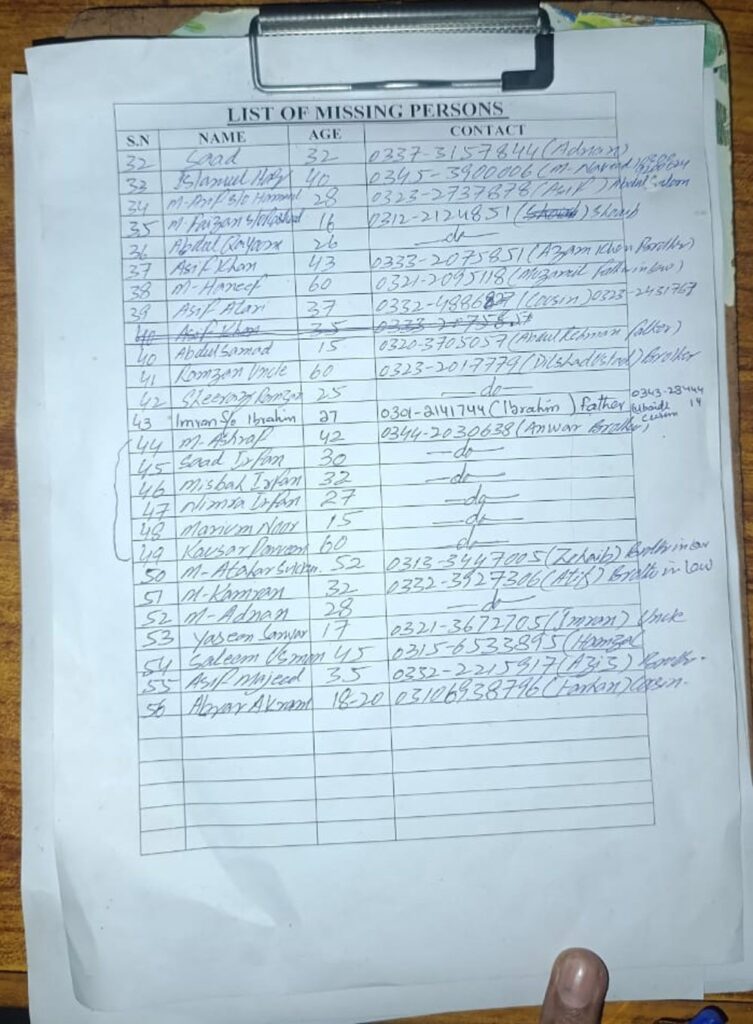 LIST OF MISSING PERSONS
S.N NAME AGE CONTACT
32 Saad 32 0337-3157844 (Adnan)
33 40 0345-3900006 (M-
34 M-Arif S/o 28 0323-2737878 (Asif) Abdul Salam
35 M-Faizan S/o 16 0312-2124851 Shoaib
36 Abdul 26 -do-
37 Asif Khan 43 0333-2075851 (Azam Khan Brother)
38 M-Haneef 60 0321-2095118 (
39 Asif 37 (Cousin) 0323-2431767
40 Asif Khan 35
40 Abdul Samad 15 0320-3705057 (Abdul Rehman father)
41 Ramzan Uncle 60 0323-2017779 (Dilshad Brother
42 25 -do-
43 Imran S/o Ibrahim 27 0301-2141744 (Ibrahim) father 0343-23444 14
44 M-Ashraf 42 0344-2030638 (Anwar Brother)
45 Saad Irfan 30 -do-
46 Misbah Irfan 32 -do-
47 Nimra Irfan 27 -do-
48 Marium Noor 15 -do-
49 Kausar Parveen 60 -do-
50 M- 52 0313-3447005 (Zohaib) Brother in law
51 M-Kamran 32 0332-3927306 (Atif) Brother in Low
52 M-Adnan 28 -do-
53 Yaseen Sarwar 17 0321-3672705 (Imran) Uncle
54 Saleem Usman 45 0315-6533895 (Hamza)
55 Asif Majeed 35 0332-2215917 (Aziz) Brother.
56 Abrar Akram 18-20 03106938796 (Farhan) Cousin-